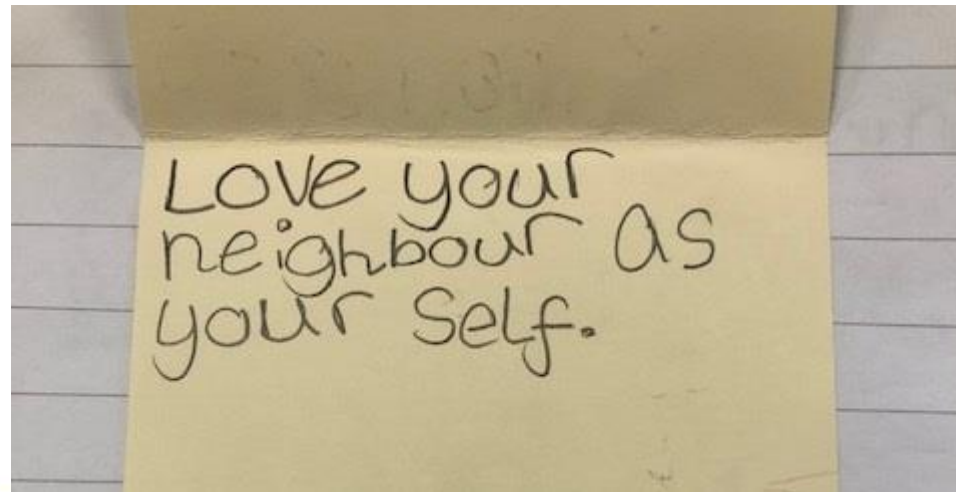 Love your
neighbour as
your self.